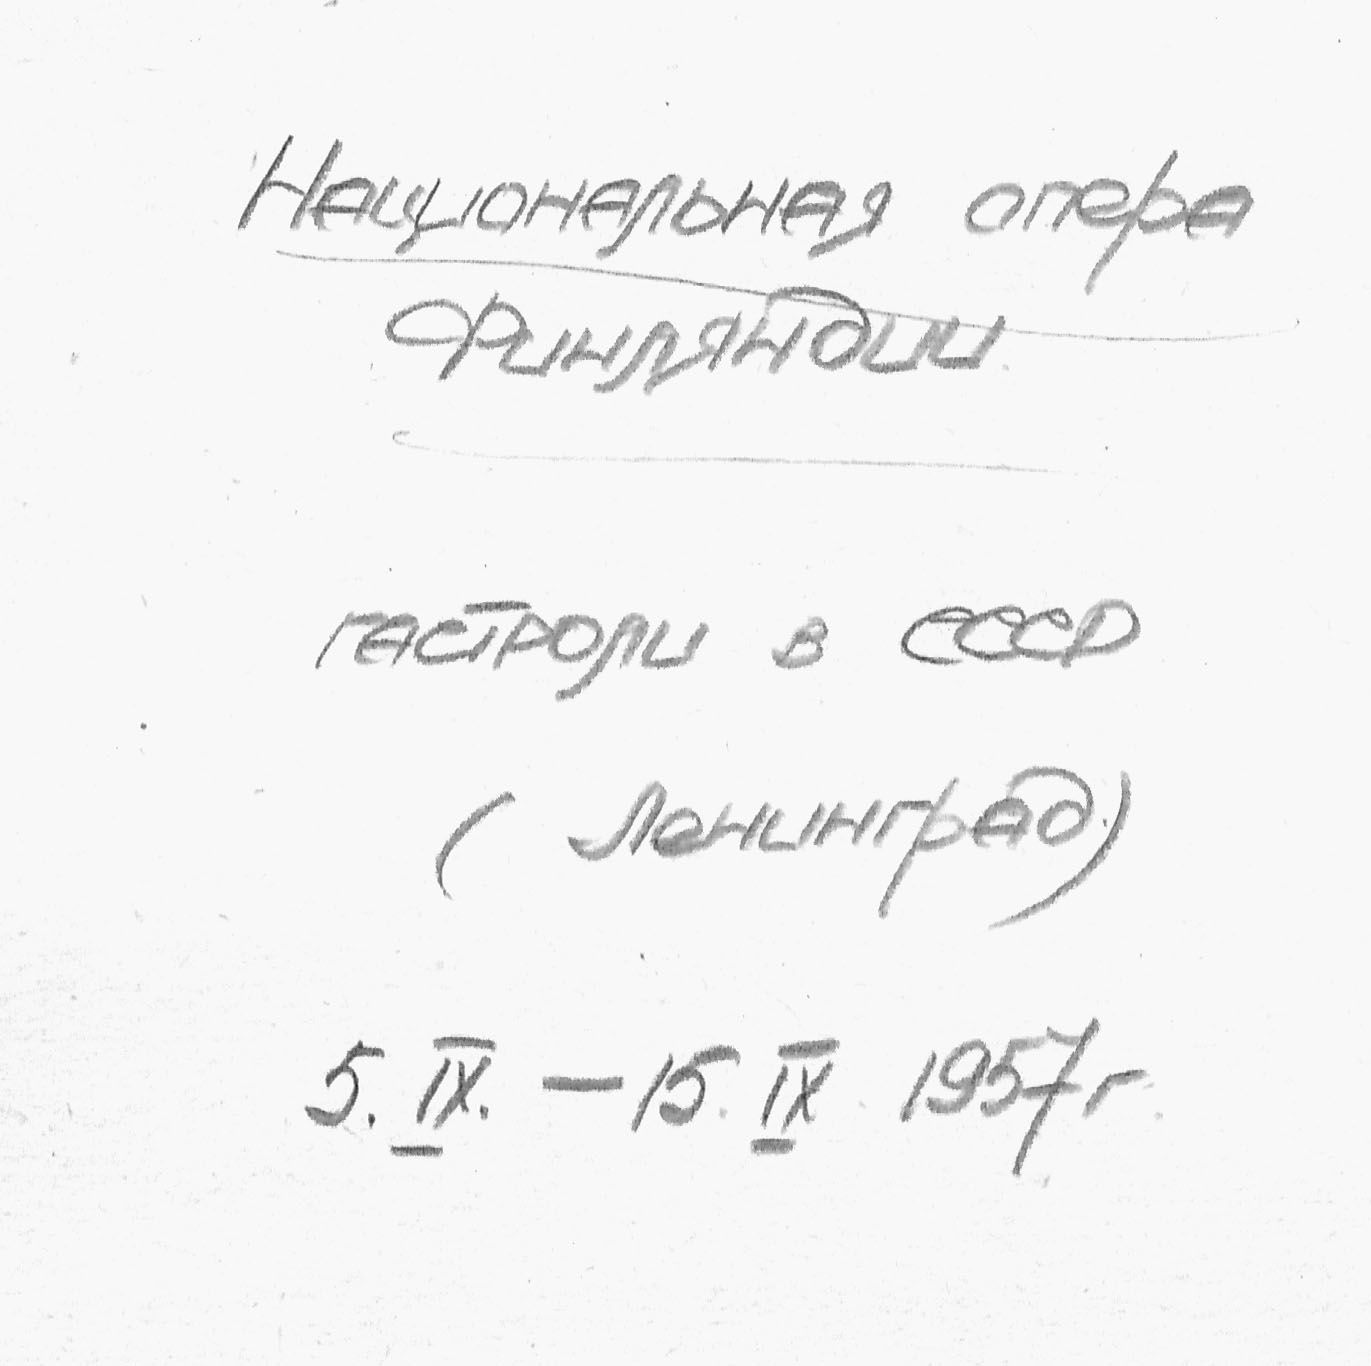 Национальная опера
Финляндии.
гастроли в СССР
(Ленинград)
5. IX. – 15. IX 1957 г.